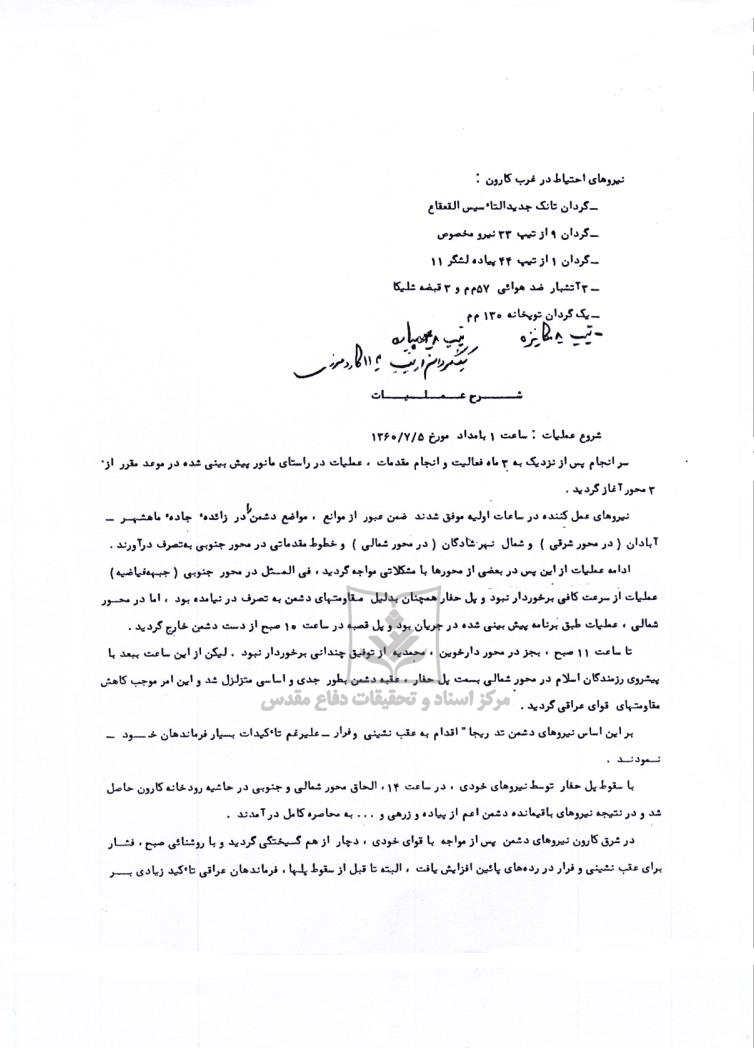 نیروهای احتیاط در غرب کارون :
ــ گردان تانک جدیدالتاٴسیس القعقاع
ــ گردان ۹ از تیپ ۳۳ نیرو مخصوص
ــ گردان ۱ از تیپ ۴۴ پیاده لشگر ۱۱
ــ ۳ آتشبار ضد هوائی ۵۷ م م و ۳ قبضه شلیکا
ــ یک گردان توپخانه ۱۳۰ م م
- تیپ ۸ مکانیزه تیپ ۴۸ پیاده
یک گردان از تیپ ۱۱ گارد مرزی
شــرح عـمـلـیـات
شروع عملیات : ساعت ۱ بامداد مورخ ۱۳۶۰/۷/۵
سر انجام پس از نزدیک به ۳ ماه فعالیت و انجام مقدمات ، عملیات در راستای مانور پیش بینی شده در موعد مقرر از
۳ محور آغاز گردید .
نیروهای عمل کننده در ساعات اولیه موفق شدند ضمن عبور از موانع ، مواضع دشمن را در زائدهٴ جادهٴ ماهشهـر ــ
آبادان ( در محور شرقی ) و شمال نهر شادگان ( در محور شمالی ) و خطوط مقدماتی در محور جنوبی به‌تصرف درآورند .
ادامه عملیات از این پس در بعضی از محورها با مشکلاتی مواجه گردید ، فی المـثل در محور جنوبی ( جبهه‌فیاضیه )
عملیات از سرعت کافی برخوردار نبود و پل حفار همچنان بدلیل مقاومتهای دشمن به تصرف در نیامده بود ، اما در محـور
شمالی ، عملیات طبق برنامه پیش بینی شده در جریان بود و پل قصبه در ساعت ۱۰ صبح از دست دشمن خارج گردید .
تا ساعت ۱۱ صبح ، بجز در محور دارخوین ، محمدیه از توفیق چندانی برخوردار نبود . لیکن از این ساعت ببعد با
پیشروی رزمندگان اسلام در محور شمالی بسمت پل حفار ، عقبه دشمن بطور جدی و اساسی متزلزل شد و این امر موجب کاهش
مقاومتهای قوای عراقی گردید .
مرکز اسناد و تحقیقات دفاع مقدس
بر این اساس نیروهای دشمن تد ریجا" اقدام به عقب نشینی وفرار ــ علیرغم تاٴکیدات بسیار فرماندهان خـود ــ
نـمودنـد .
با سقوط پل حفار توسط نیروهای خودی ، در ساعت ۱۴، الحاق محور شمالی و جنوبی در حاشیه رودخانه کارون حاصل
شد و در نتیجه نیروهای باقیمانده دشمن اعم از پیاده و زرهی و ... به محاصره کامل در آمدند .
در شرق کارون نیروهای دشمن پس از مواجه با قوای خودی ، دچار از هم گسیختگی گردید و با روشنائی صبح ، فشـار
برای عقب نشینی و فرار در رده‌های پائین افزایش یافت ، البته تا قبل از سقوط پلها ، فرماندهان عراقی تاٴکید زیادی بــر